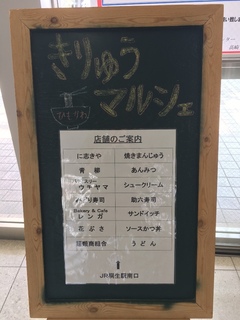 きりゅう
マルシェ
ひもかわ
店舗のご案内
に志きや 焼きまんじゅう
青柳 あんみつ
ウチヤマ シュークリーム
寿司 助六寿司
Bakery & Cafe
レンガ サンドイッチ
花ぶさ ソースかつ丼
うどん
JR桐生駅南口